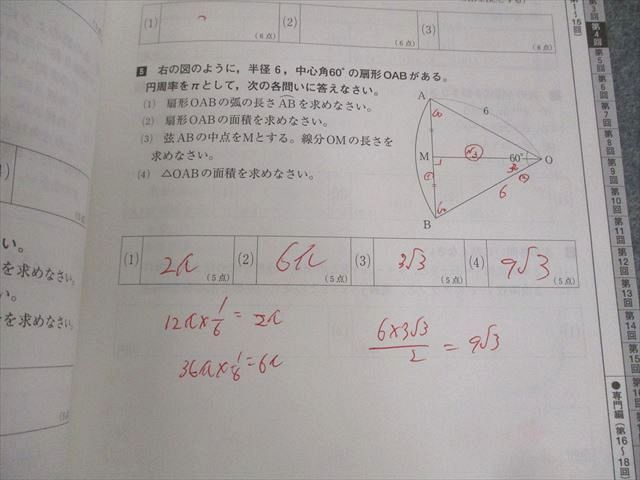 (1)
(6点)
(2)
(6点)
(3)
(6点)
5 右の図のように，半径6，中心角60°の扇形OABがある。
円周率をπとして，次の各問いに答えなさい。
(1) 扇形OABの弧の長さABを求めなさい。
(2) 扇形OABの面積を求めなさい。
(3) 弦ABの中点をMとする。線分OMの長さを
求めなさい。
(4) △OABの面積を求めなさい。
A
6
60
M
√3
60°
O
1
30
2
6
60
B
(1) 2π (5点)
(2) 6π (5点)
(3) 3√3 (5点)
(4) 9√3 (5点)
12π×1/6=2π
36π×1/6=6π
6×3√3/2=9√3
い。
を求めなさい。
い。
を求めなさい。
第3回
第4回
第5回
第6回
第7回
第8回
第9回
第10回
第11回
第12回
第13回
第14回
第15回
●専門編（第16〜18回）